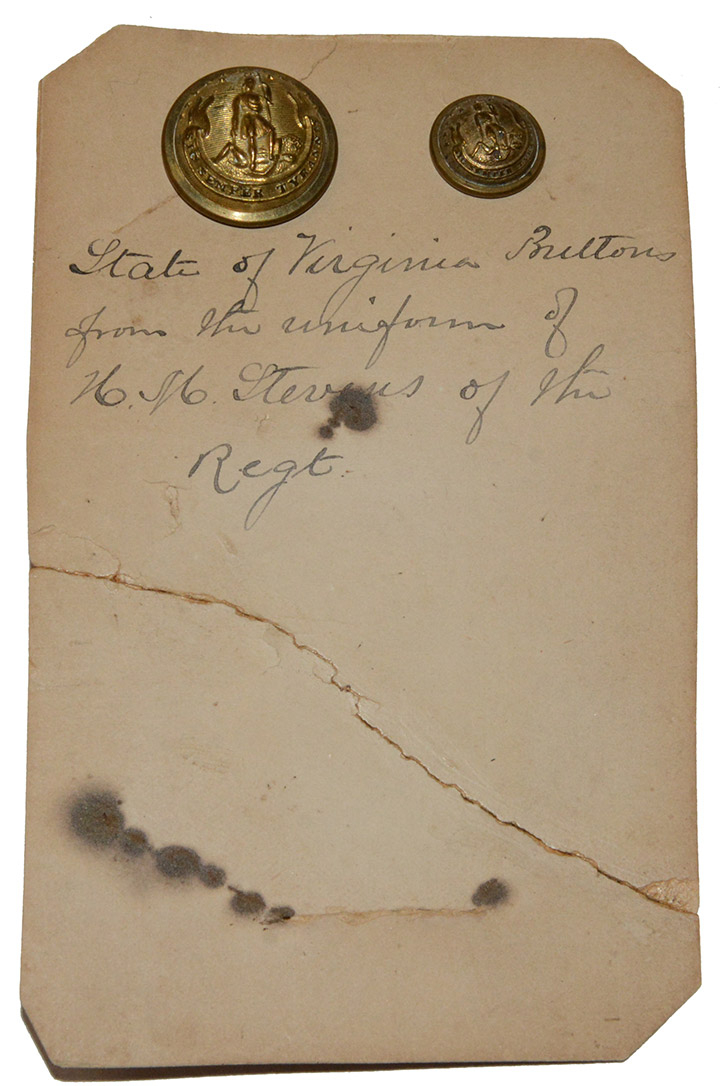 SIC SEMPER TYRANNIS
State of Virginia Buttons
from the uniform of
H. M. Stevens of the
Regt.